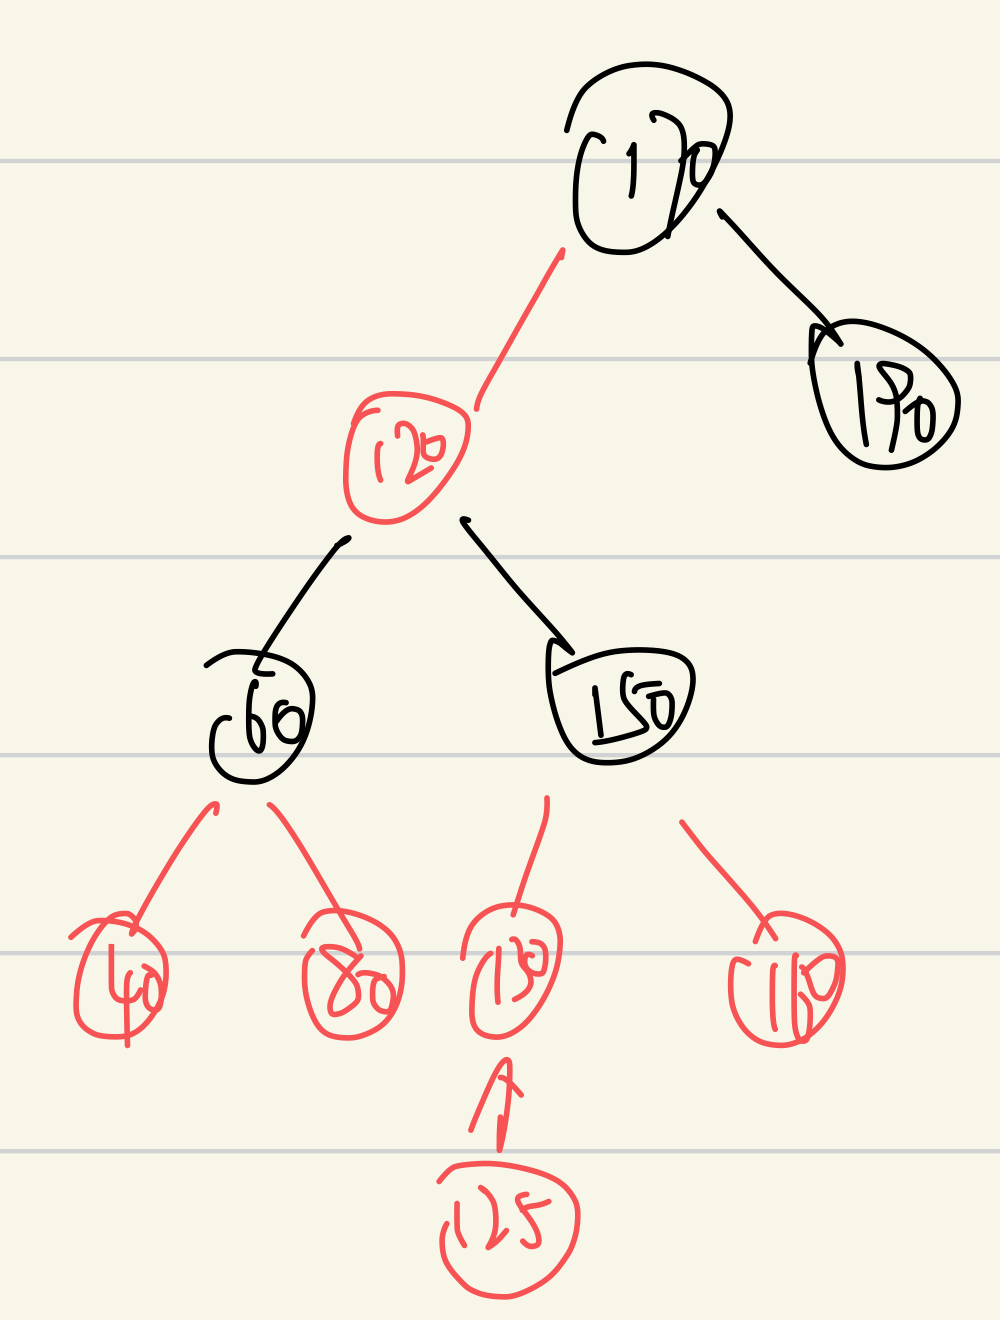 170
190
120
60
150
40
80
130
160
125